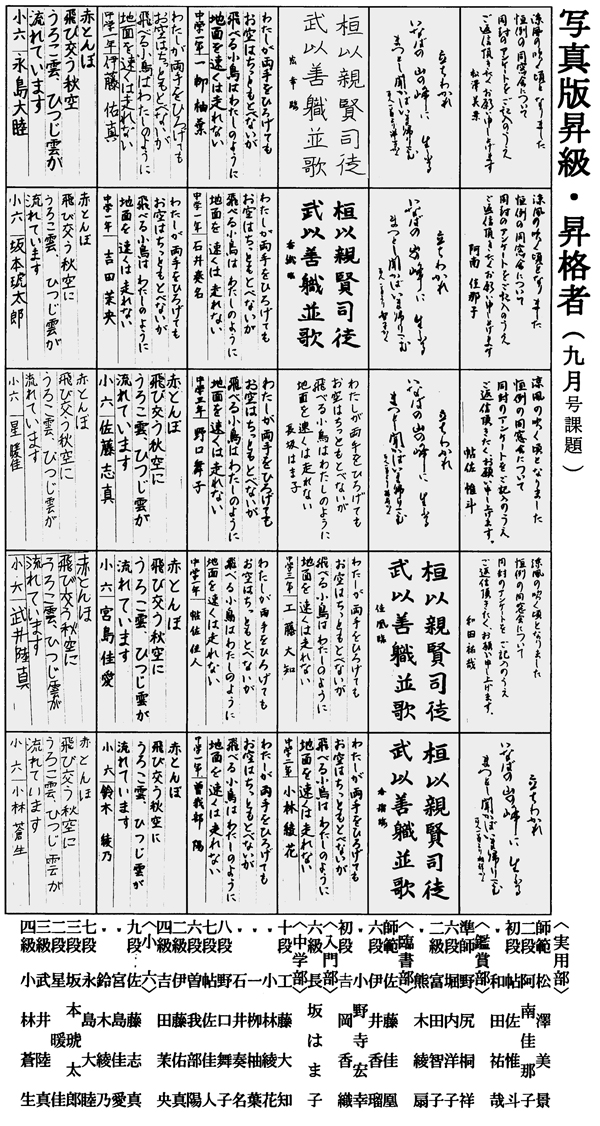 写真版昇級・昇格者（九月号課題）
涼風の吹く頃となりました
恒例の同窓会について
同封のアンケートをご記入のうえ
ご返信頂きたくお願い申し上げます
松澤美景
立ちわかれ
いなばの山の峰に 生ふる
まつとし聞かばいま帰り来む
桓以親賢司徒
武以善職並歌
宏幸臨
わたしが両手をひろげても
お空はちっともとべないが
飛べる小鳥はわたしのように
地面を速くは走れない
中学一年 一栁柚葉
わたしが両手をひろげても
お空はちっともとべないが
飛べる小鳥はわたしのように
地面を速くは走れない
中学一年 伊藤佑真
赤とんぼ
飛び交う秋空に
うろこ雲、ひつじ雲が
流れています
小六 永島大睦
涼風の吹く頃となりました
恒例の同窓会について
同封のアンケートをご記入のうえ
ご返信頂きたくお願い申し上げます
阿南佳那子
立ちわかれ
いなばの山の峰に 生ふる
まつとし聞かばいま帰り来む
桓以親賢司徒
武以善職並歌
香織臨
わたしが両手をひろげても
お空はちっともとべないが
飛べる小鳥はわたしのように
地面を速くは走れない
中学一年 石井奏名
わたしが両手をひろげても
お空はちっともとべないが
飛べる小鳥はわたしのように
地面を速くは走れない
中学一年 吉田茉央
赤とんぼ
飛び交う秋空に
うろこ雲、ひつじ雲が
流れています
小六 坂本琥太郎
涼風の吹く頃となりました
恒例の同窓会について
同封のアンケートをご記入のうえ
ご返信頂きたくお願い申し上げます。
帖佐惟斗
立ちわかれ
いなばの山の峰に 生ふる
まつとし聞かばいま帰り来む
わたしが両手をひろげても
お空はちっともとべないが
飛べる小鳥はわたしのように
地面を速くは走れない
長坂はま子
わたしが両手をひろげても
お空はちっともとべないが
飛べる小鳥はわたしのように
地面を速くは走れない
中学三年 野口舞子
赤とんぼ
飛び交う秋空に
うろこ雲、ひつじ雲が
流れています
小六 佐藤志真
赤とんぼ
飛び交う秋空に
うろこ雲、ひつじ雲が
流れています
小六 星暖佳
涼風の吹く頃となりました
恒例の同窓会について
同封のアンケートをご記入のうえ
ご返信頂きたくお願い申し上げます。
和田祐哉
桓以親賢司徒
武以善職並歌
佳凰臨
わたしが両手をひろげても
お空はちっともとべないが
飛べる小鳥はわたしのように
地面を速くは走れない
中学三年 工藤大知
わたしが両手をひろげても
お空はちっともとべないが
飛べる小鳥はわたしのように
地面を速くは走れない
中学一年 帖佐佳人
赤とんぼ
飛び交う秋空に
うろこ雲、ひつじ雲が
流れています
小六 宮島佳愛
赤とんぼ
飛び交う秋空に
うろこ雲、ひつじ雲が
流れています
小六 武井陸真
立ちわかれ
いなばの山の峰に 生ふる
まつとし聞かばいま帰り来む
桓以親賢司徒
武以善職並歌
香瑠臨
わたしが両手をひろげても
お空はちっともとべないが
飛べる小鳥はわたしのように
地面を速くは走れない
中学二年 小林綾花
わたしが両手をひろげても
お空はちっともとべないが
飛べる小鳥はわたしのように
地面を速くは走れない
中学一年 曽我部陽
赤とんぼ
飛び交う秋空に
うろこ雲、ひつじ雲が
流れています
小六 鈴木綾乃
赤とんぼ
飛び交う秋空に
うろこ雲、ひつじ雲が
流れています
小六 小林蒼生
〈実用部〉
師範 松澤美景
二段 阿南佳那子
初段 帖佐惟斗
〃 和田祐哉
〈鑑賞部〉
準師 野尻桐祥
六段 堀内洋子
二級 富田智子
〃 熊木綾扇
〈臨書部〉
師範 佐藤佳凰
六段 伊井香瑠
〃 小野寺宏幸
初段 吉岡香織
〈入門部〉
六級 長坂はま子
〈中学部〉
十段 工藤大知
〃 小林綾花
〃 一栁柚葉
〃 石井奏名
八段 野口舞子
七段 帖佐佳人
六段 曽我部陽
二級 伊藤佑真
四級 吉田茉央
〈小六〉
九段 佐藤志真
〃 宮島佳愛
〃 鈴木綾乃
七段 永島大睦
三段 坂本琥太郎
二段 星暖佳
三級 武井陸真
四級 小林蒼生